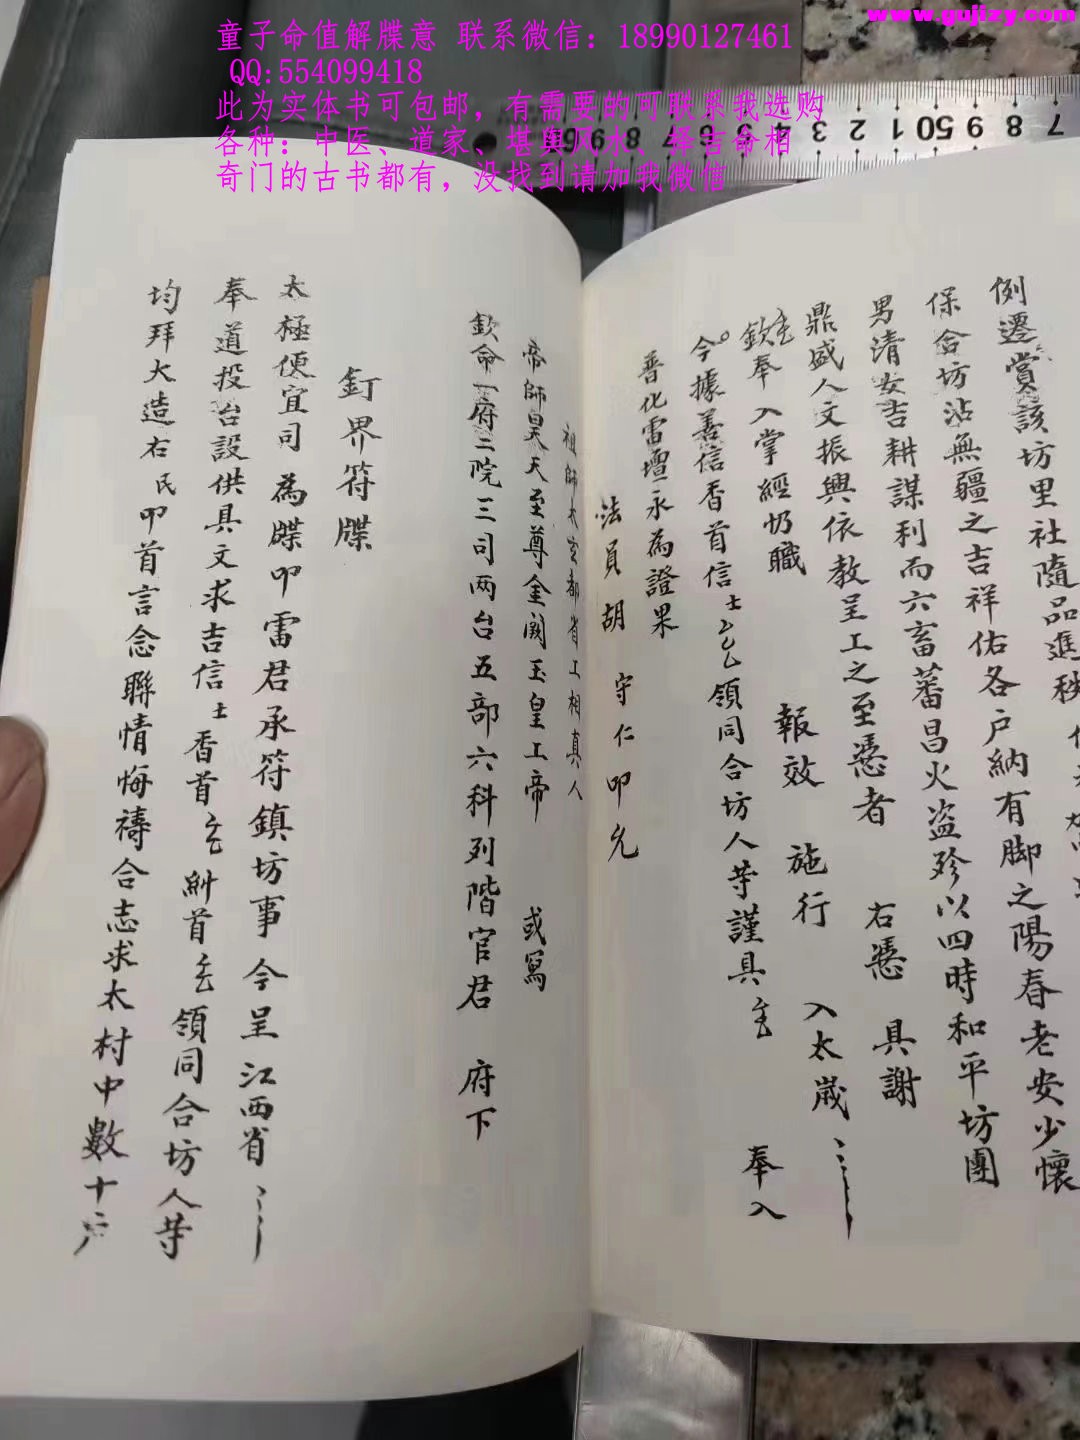 www.gujizy.com
童子命值解牒意 联系微信：18990127461
QQ:554099418
此为实体书可包邮，有需要的可联系我选购
各种：中医、道家、堪舆风水、择吉命相
奇门的古书都有，没找到请加我微信
7 8 9 50 1 2 3 4 5 6 7 8 9
例遷賞該坊里社隨品進秩
保合坊沾無疆之吉祥佑各户納有脚之陽春老安少懷
男清女吉耕謀利而六畜蕃昌火盗殄以四時和平坊團
鼎盛人文振興依教呈工之至憑者 右憑 具謝
欽奉 入掌經扔職 報效 施行 入太歲
今據善信香首信士 領同合坊人等謹具 奉入
普化雷壇永為證果
法員胡 守仁叩允
祖師太玄都省工相真人
帝師昊天至尊金闕玉皇工帝 或寫
欽命一府二院三司两台五部六科列階官君 府下
釘界符牒
太極便宜司 為牒叩雷君承符鎮坊事 今呈江西省
奉道投台設供具文求吉信士香首 糾首 領同合坊人等
均拜大造右民叩首言念聯情悔禱合志求太村中數十户